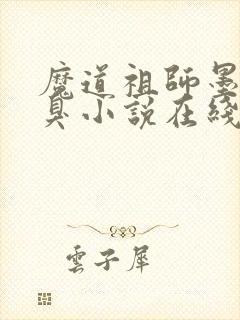 魔道祖師墨
臭小說在綫
雲子犀